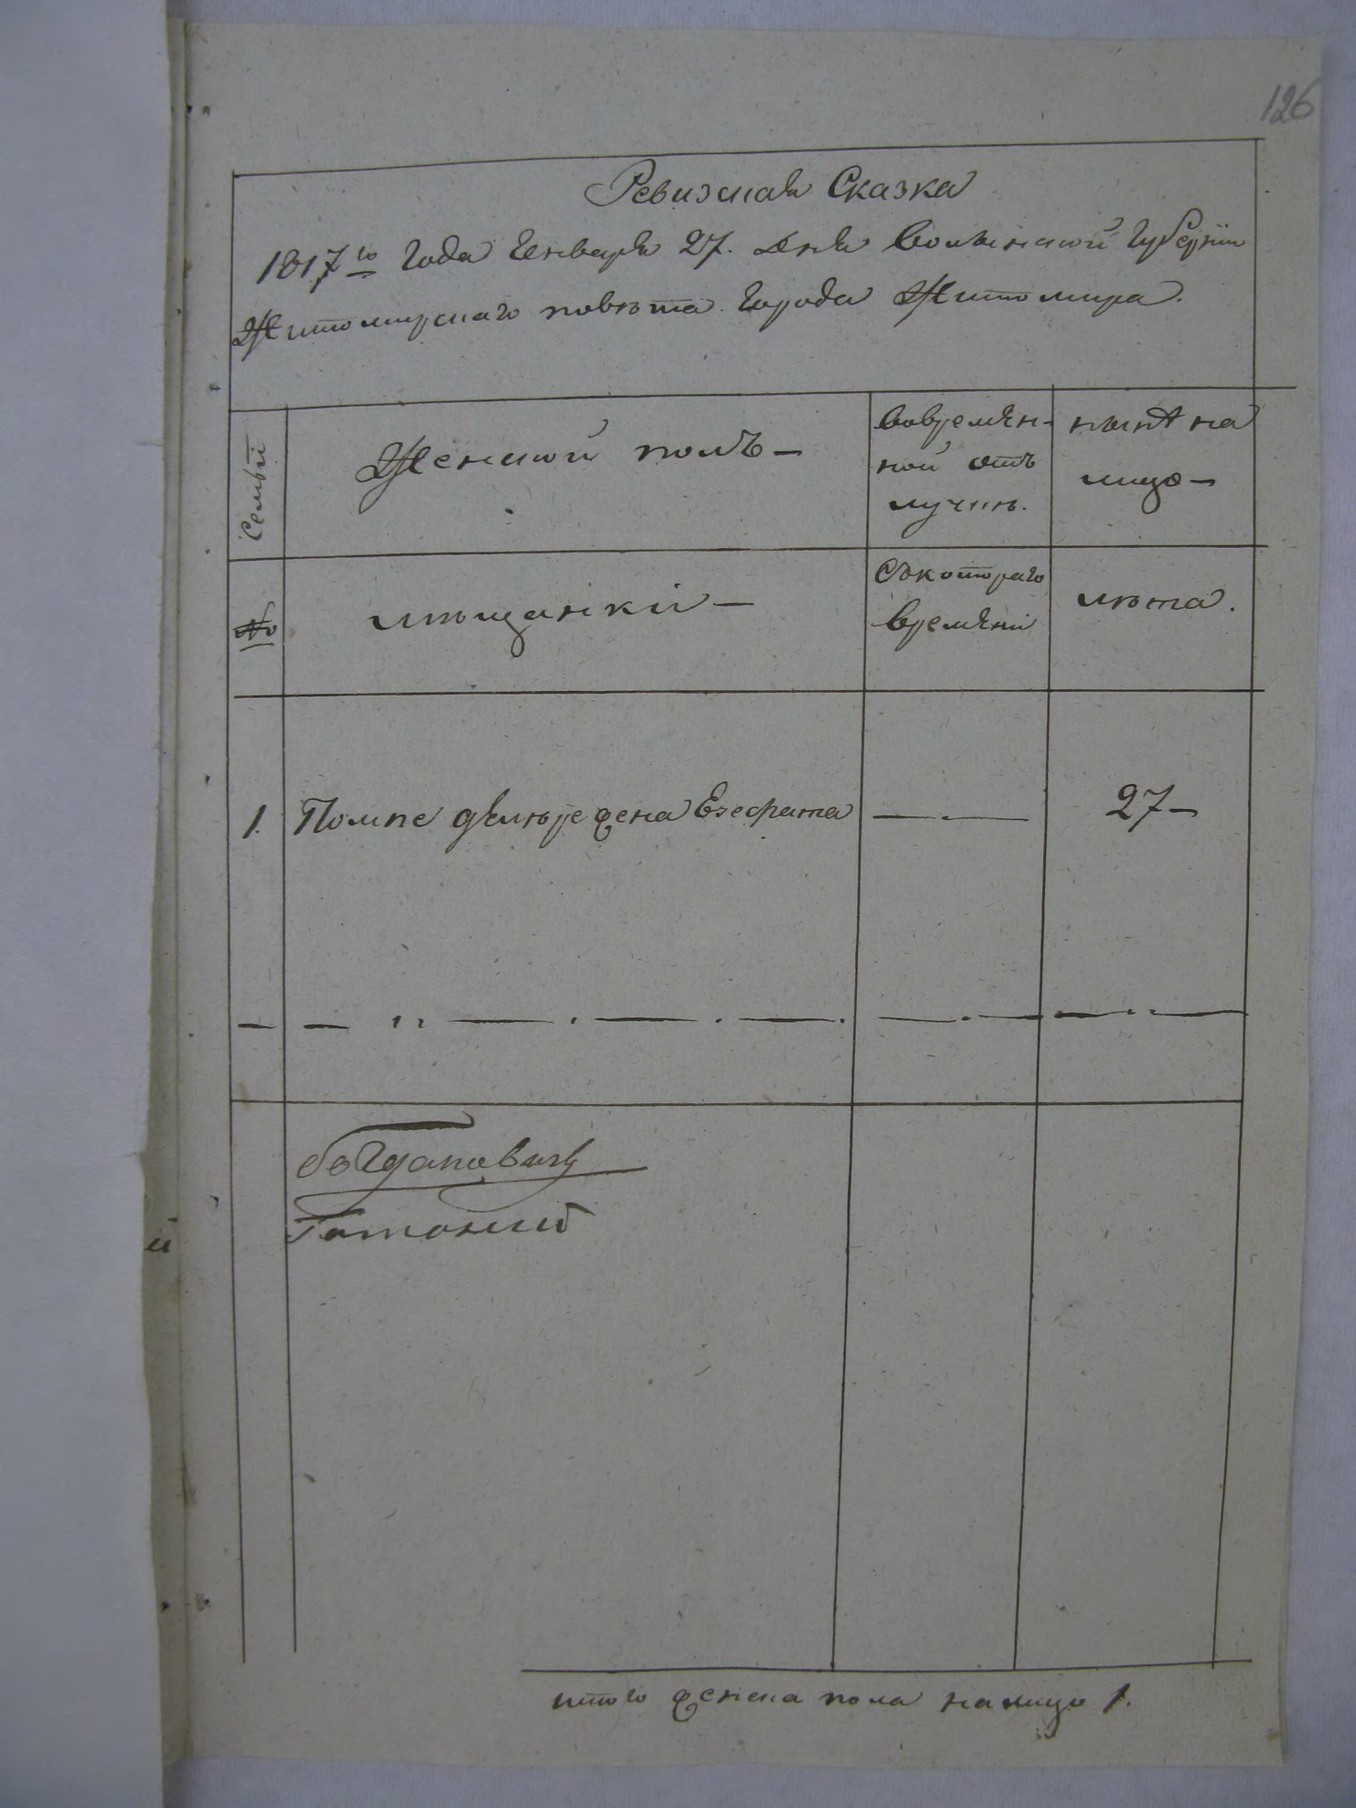 126
Ревизская Сказка
1817го Года Генваря 27. Дня Волынской Губернiи
Житомирскаго повѣта Города Житомира.
Семьи
Женской полъ —
вовремян-
ной отъ
лучкѣ.
нынѣ на
лицо —
№
мѣщанкiи —
Съкотораго
времянi
лѣта.
1. Помпе жена 27 —
Богдановичъ
итого женска пола налицо 1.